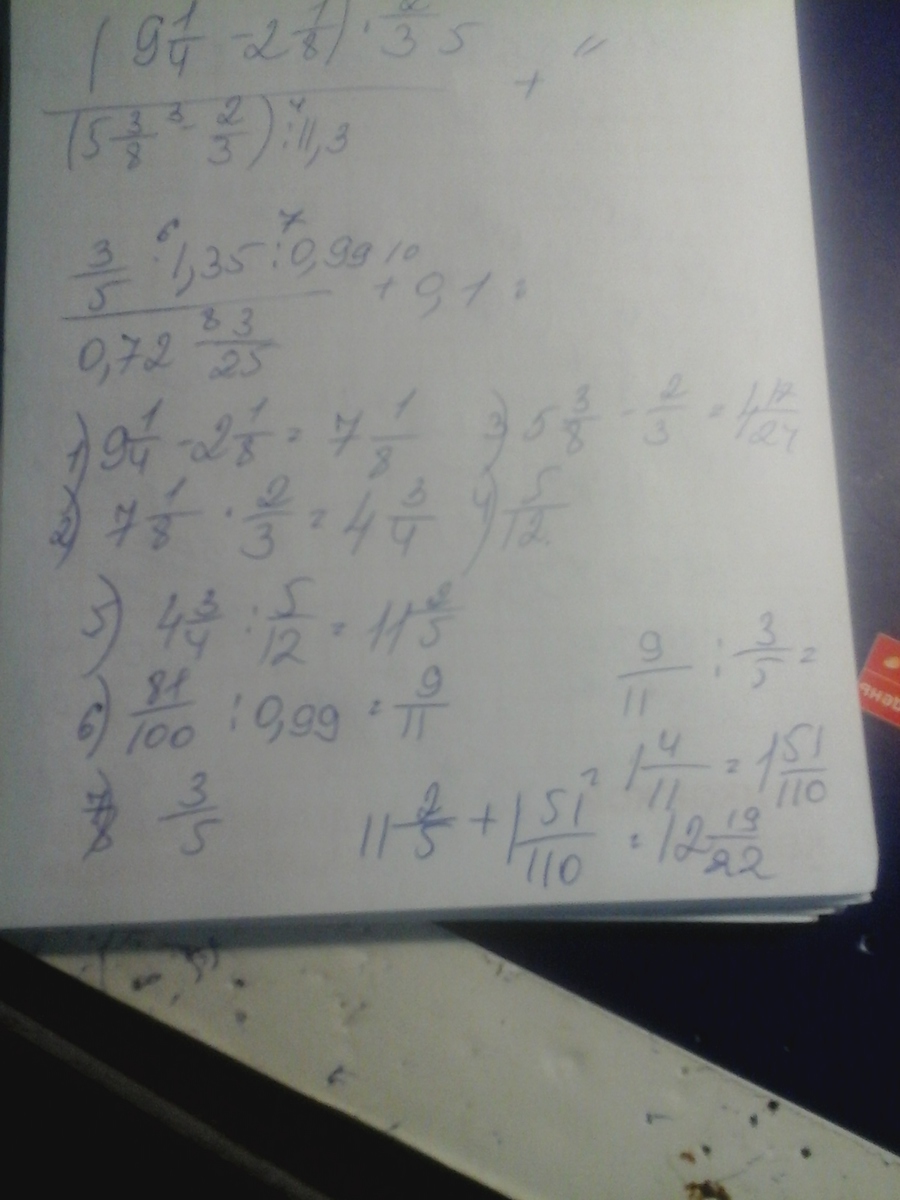 (9 1/4 - 2 1/8) · 2/3 5
(5 3/8 3 - 2/3) 4 : 11,3 + 11
3/5 · 6 1,35 : 7 0,99 10
0,72 8 3/25 + 0,1 =
1) 9 1/4 - 2 1/8 = 7 1/8 3) 5 3/8 - 2/3 = 4 17/24
2) 7 1/8 · 2/3 = 4 3/4 4) 5/12
5) 4 3/4 : 5/12 = 11 2/5
6) 81/100 : 0,99 = 9/11 9/11 : 3/5 =
= 1 4/11 = 1 51/110
7/8 3/5 11 2/5 + 1 51/110 = 12 19/22
день